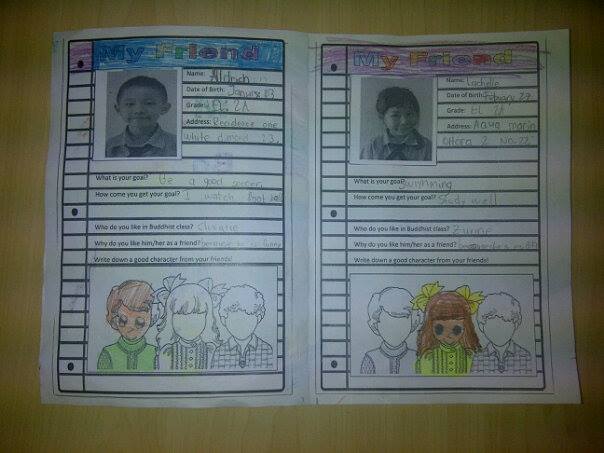 My Friend
Name: Aldrich
Date of Birth: January 13
Grade: EL 2A
Address: Residence one
white diamond 23,
What is your goal? Be a good soccer
How come you get your goal? I watch foot ball
Who do you like in Buddhist class?
Why do you like him/her as a friend? because he is funny
Write down a good character from your friends!
My Friend
Name: Lachelle
Date of Birth: February 27
Grade: EL 2A
Address: Aqua marin
Ottora 2 No.22
What is your goal? Swimming
How come you get your goal? Study well
Who do you like in Buddhist class?
Why do you like him/her as a friend?
Write down a good character from your friends!